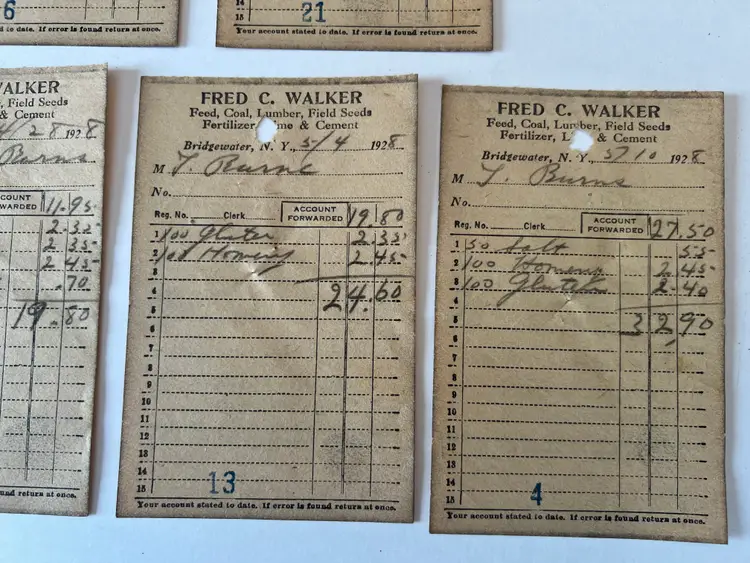 6
15
21
to date. If error is found return at once.
Your account stated to date. If error is found return at once.
WALKER
, Field Seeds
& Cement
4/28 1928
Burns
COUNT
WARDED
11.95
2.35
2.35
2.45
.70
19.80
und return at once.
FRED C. WALKER
Feed, Coal, Lumber, Field Seeds
Fertilizer, me & Cement
Bridgewater, N. Y., 5/4 1928
M T. Burns
No.
Reg. No. Clerk ACCOUNT FORWARDED 19.80
1 100 Gluten 2.35
2 100 Hominy 2.45
3
4 24.60
5
6
7
8
9
10
11
12
13
14
15 13
Your account stated to date. If error is found return at once.
FRED C. WALKER
Feed, Coal, Lumber, Field Seeds
Fertilizer, L & Cement
Bridgewater, N. Y., 5/10 1928
M T. Burns
No.
Reg. No. Clerk ACCOUNT FORWARDED 27.50
1 50 Salt 55
2 100 Hominy 2.45
3 100 Gluten 2.40
4
5 32.90
6
7
8
9
10
11
12
13
14
15 4
Your account stated to date. If error is found return at once.